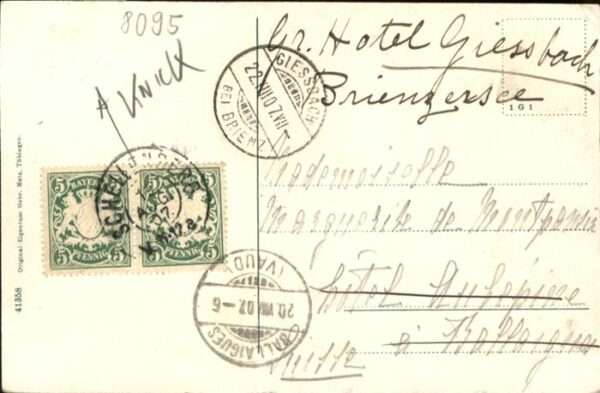 8095
A KNICK
Gr. Hotel Giessbach
Brienzersee
161
GIESSBACH
22.VIII.07.VII
BEI BRIENZ
Mademoiselle
Marguerite de
Hôtel Aubépine
à Ballaigues
Suisse
5 BAYERN 5
PFENNIG
5 5
PFENNIG
BALLAIGUES
20.VIII.07.-6
(VAUD)
41358 Original-Eigentum Gebr. Metz, Tübingen.